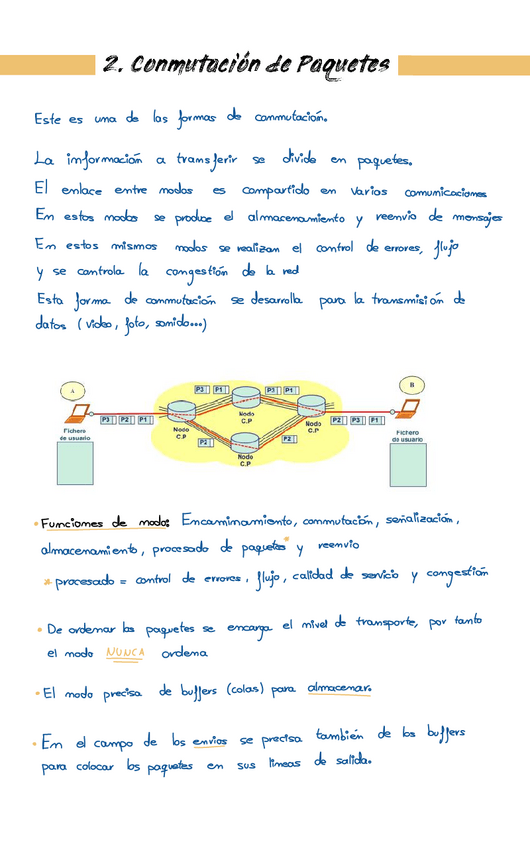 2. Conmutación de Paquetes
Este es una de las formas de conmutación.
La información a transferir se divide en paquetes.
El enlace entre nodos es compartido en varios comunicaciones
En estos nodos se produce el almacenamiento y reenvio de mensajes
En estos mismos nodos se realizan el control de errores, flujo
y se controla la congestión de la red
Esta forma de conmutación se desarrolla para la transmisión de
datos (video, foto, sonido...)
A
B
P3 P1
P3 P1
P3 P2 P1
P2 P3 P1
Nodo
C.P
Nodo
C.P
Nodo
C.P
Nodo
C.P
P2
P2
Fichero
de usuario
Fichero
de usuario
* Funciones de nodo: Encaminamiento, conmutación, señalización,
almacenamiento, procesado de paquetes* y reenvio
* procesado = control de errores, flujo, calidad de servicio y congestión
• De ordenar los paquetes se encarga el nivel de transporte, por tanto
el nodo NUNCA ordena
• El nodo precisa de buffers (colas) para almacenar.
• En el campo de los envios se precisa también de los buffers
para colocar los paquetes en sus líneas de salida.